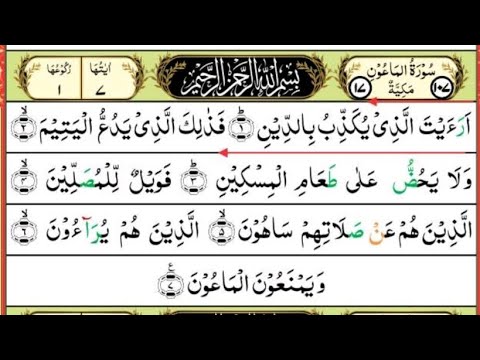 سُوْرَةُ الْمَاعُوْنِ مَكِّيَّةٌ ١٠٧ ١٧
بِسْمِ اللّٰهِ الرَّحْمٰنِ الرَّحِيْمِ
اٰيَاتُهَا ٧
رُكُوْعُهَا ١
اَرَءَيْتَ الَّذِىْ يُكَذِّبُ بِالدِّيْنِ ۝١ فَذٰلِكَ الَّذِىْ يَدُعُّ الْيَتِيْمَ ۝٢
وَلَا يَحُضُّ عَلٰى طَعَامِ الْمِسْكِيْنِ ۝٣ فَوَيْلٌ لِّلْمُصَلِّيْنَ ۝٤
الَّذِيْنَ هُمْ عَنْ صَلَاتِهِمْ سَاهُوْنَ ۝٥ الَّذِيْنَ هُمْ يُرَآءُوْنَ ۝٦
وَيَمْنَعُوْنَ الْمَاعُوْنَ ۝٧ ع